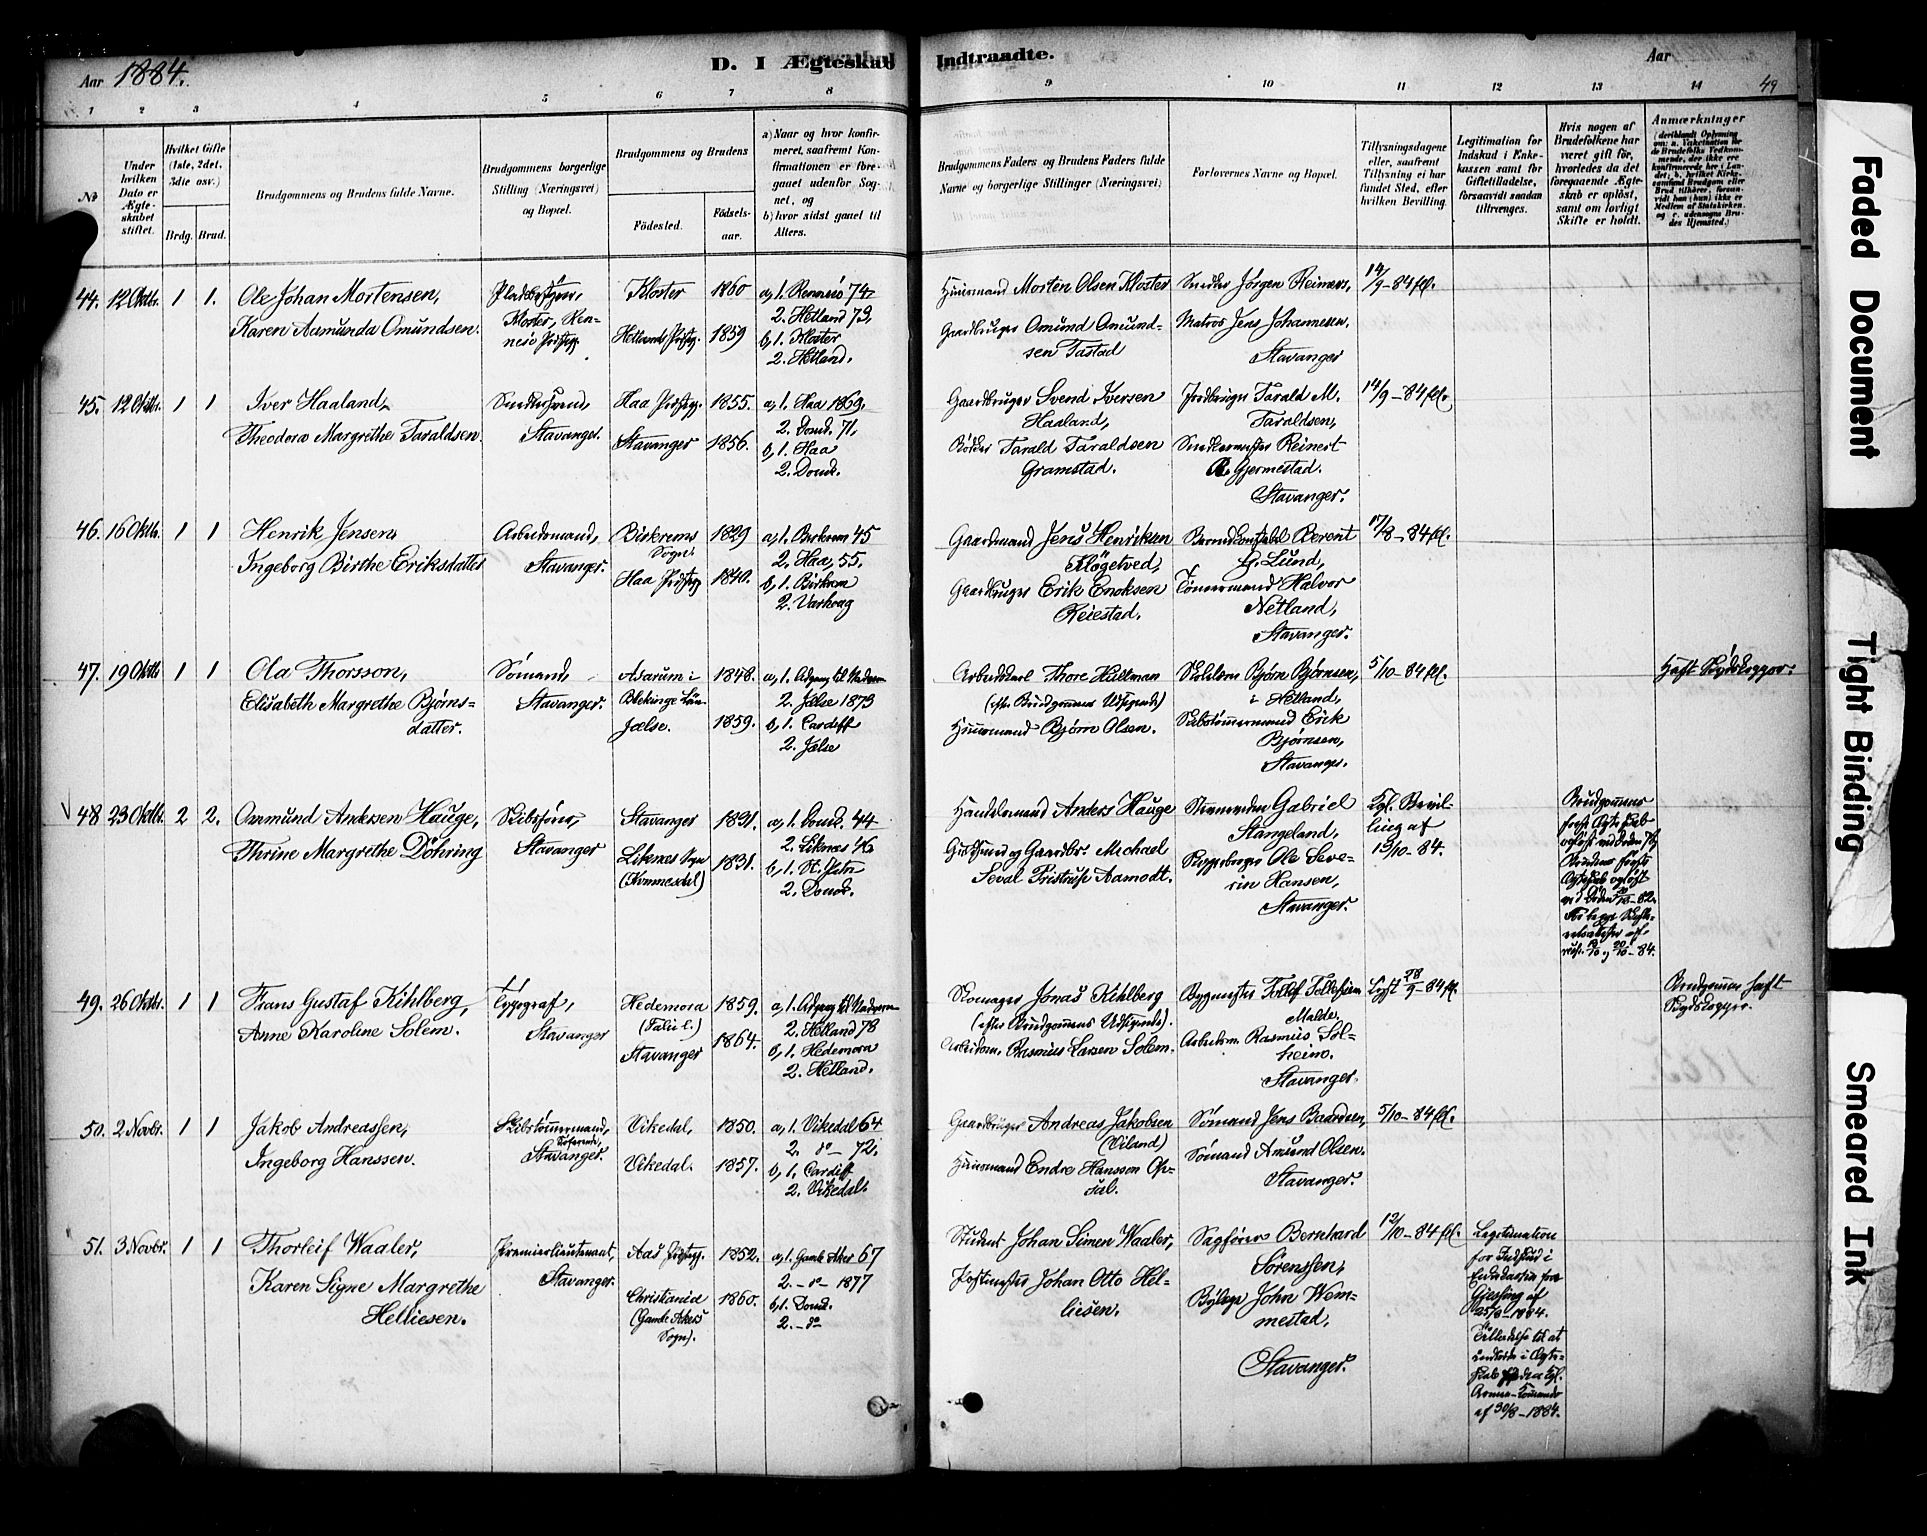 Aar 1884.
D. I Ægteskab Indtraadte.
Aar
49
1 2 3 4 5 6 7 8 9 10 11 12 13 14
No
Under hvilken Dato er Ægteskabet stiftet.
Hvilket Gifte (1ste, 2det, 3die osv.)
Brdg. Brud.
Brudgommens og Brudens fulde Navne.
Brudgommens borgerlige Stilling (Næringsvei) og Bopæl.
Brudgommens og Brudens
Fødested.
Fødselsaar.
a) Naar og hvor konfirmeret, saafremt Konfirmationen er foregaaet udenfor Sognet, og
b) hvor sidst gaaet til Alters.
Brudgommens Faders og Brudens Faders fulde Navne og borgerlige Stillinger (Næringsvei)
Forlovernes Navne og Bopæl.
Tillysningsdagene eller, saafremt Tillysning ei har fundet Sted, efter hvilken Bevilling.
Legitimation for Indskud i Enkekassen samt for Giftetilladelse, forsaavidt saadan tiltrænges.
Hvis nogen af Brudefolkene har været gift før, hvorledes da det foregaaende Ægteskab er opløst, samt om lovligt Skifte er holdt.
Anmærkninger
44. 12 Oktbr. 1 1.
Ole Johan Mortensen,
Karen Aamunda Omundsen.
Kloster, Rennesø Prstgj.
Kloster 1860
Hetlands Prstgj. 1859
a, 1. Rennesø 74
2. Hetland 73,
b, 1. Kloster
2. Hetland.
Huusmand Morten Olsen Kloster
Gaardbruger Omund Omundsen Tastad
Snedker Jörgen Reiners,
Matros Jens Johannesen,
Stavanger
14/9-84 fl.
45. 12 Oktbr. 1 1
Iver Haaland,
Theodora Margrethe Taraldsen.
Snedkersvend,
Stavanger.
Haa Prstgj. 1855.
Stavanger 1856.
a, 1. Haa 1869.
2. Domk. 71,
b, 1. Haa
2. Domk.
Gaardbruger Svend Iversen
Haaland,
Bødker Tarald Taraldsen
Gramstad.
Jordbruger Tarald M.
Taraldsen,
Snedkermester Reinert
R. Gjermestad.
Stavanger.
14/9-84 fl.
46. 16 Oktbr. 1 1
Henrik Jensen,
Ingeborg Birthe Eriksdatter
Arbeidsmand,
Stavanger.
Birkrems Sogn. 1829
Haa Prstgj 1840.
a, 1. Birkrem 45
2. Haa, 55.
b, 1. Birkrem
2. Varhaug
Gaardmand Jens Henriksen
Kløgetved,
Gaardbruger Erik Enoksen
Reiestad.
Berent
B. Lund,
Tömmermand Halvor
Netland,
Stavanger.
17/8-84 fl.
47. 19 Oktbr 1 1
Ola Thorsson,
Elisabeth Margrethe Bjørnsdatter.
Sømand,
Stavanger.
Asarum i 1848.
Blekinge Län
Jælse. 1859.
a, 1. Adgang til Nadveren
2. Jælse 1873
b, 1. Cardiff
2. Jælse
Arbeidskarl Thore Hultman
(efter Brudgommens Udsigende)
Huusmand Bjørn Olsen.
Bjørn Bjørnsen,
i Hetland,
Skibstømmermand Erik
Bjørnsen,
Stavanger.
5/10-84 fl.
Haft Bydekopper.
48 23 Oktbr. 2 2.
Aamund Andersen Hauge,
Thrine Margrethe Döhring
Skibsfører,
Stavanger
Stavanger 1821.
Likenes Sogn 1831.
(Kvinnesdal)
a, 1. Domk. 44
2. Likenes 46
b, 1. St. Petri
2. Domk.
Handelsmand Anders Hauge
Michael
Seval Pristrup Aamodt.
Gabriel
Stangeland,
Ole Severin Hansen,
Stavanger.
Kgl. Bevilling af
13/10-84.
Brudgommens
første Ægteskab
opløst ved Døden
Brudens første
Ægteskab opløst
ved Døden
49. 26 Oktbr. 1 1
Frans Gustaf Kihlberg,
Anne Karoline Solem.
Typograf,
Stavanger
Hedemora 1859.
Stavanger 1864.
a, 1. Adgang til Nadveren
2. Hetland 78
b, 1. Hedemora
2. Hetland.
Skomager Jonas Kihlberg
(efter Brudgommens Udsigende).
Arbeidsm. Rasmus Larsen Solem.
Bygmester Tollef Tollefsen
Malde,
Arbeidsm. Rasmus Solheim.
Stavanger.
Lyst 28/9-84 fl.
Brudgommen haft
Bydekopper.
50. 2 Novbr. 1 1
Jakob Andreassen,
Ingeborg Hanssen.
Skibstømmermand,
Søfarende,
Stavanger.
Vikedal, 1850.
Vikedal. 1857.
a, 1. Vikedal 64
2. do - 72.
b, 1. Cardiff
2. Vikedal.
Gaardbruger Andreas Jakobsen
(Viland)
Huusmand Endre Hansson Opsal.
Sømand Jens Baardsen,
Sømand Amund Olsen.
Stavanger.
5/10-84 fl.
51. 3 Novbr. 1 1
Thorleif Waaler,
Karen Signe Margrethe
Helliesen.
Premierlieutenant,
Stavanger.
Aas Prstgj. 1852.
Christiania 1860.
(Gamle Akers
Sogn).
a, 1. Gamle Aker 67
2. - do - 1877
b, 1. Domk.
2. - do
Student Johan Simen Waaler,
Postmester Johan Otto Helliesen.
Sagfører Bernhard
Sörenssen,
Byfoged John Wemmestad,
Stavanger.
12/10-84 fl.
Legitimation
for Indskud i
Enkekassen
25/8-1884.
Tilladelse til at
indtræde i Ægteskab
Armee-Kommando
af 30/8-1884.
Faded Document
Tight Binding
Smeared Ink